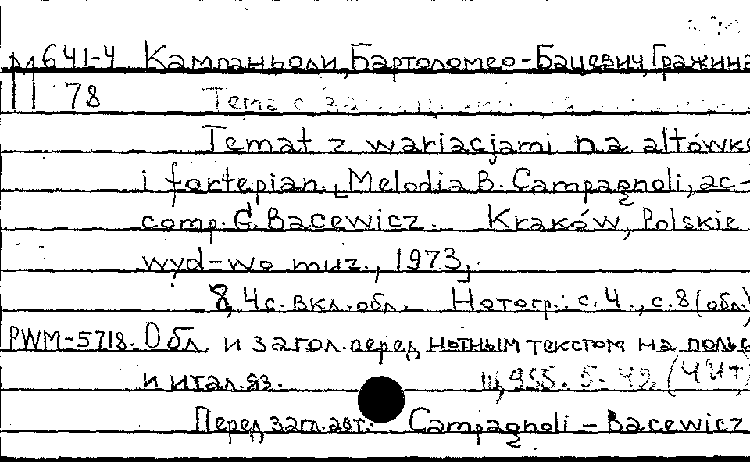 М 641-4 Кампаньоли, Бартоломео - Бацевич, Гражина
78 Тема с
Temat z wariacjami na altówkę
i fortepian. Melodia B. Campagnoli, ac-
comp. G. Bacewicz. Kraków, Polskie
wyd-wo muz., 1973.
8, 4 с. вкл. обл. Нотогр.: с. 4., с. 8 (обл)
PWM-5718. Обл. и загол. перед нотным текстом на польс
и итал. яз.
Перед загл. авт.: Campagnoli - Bacewicz